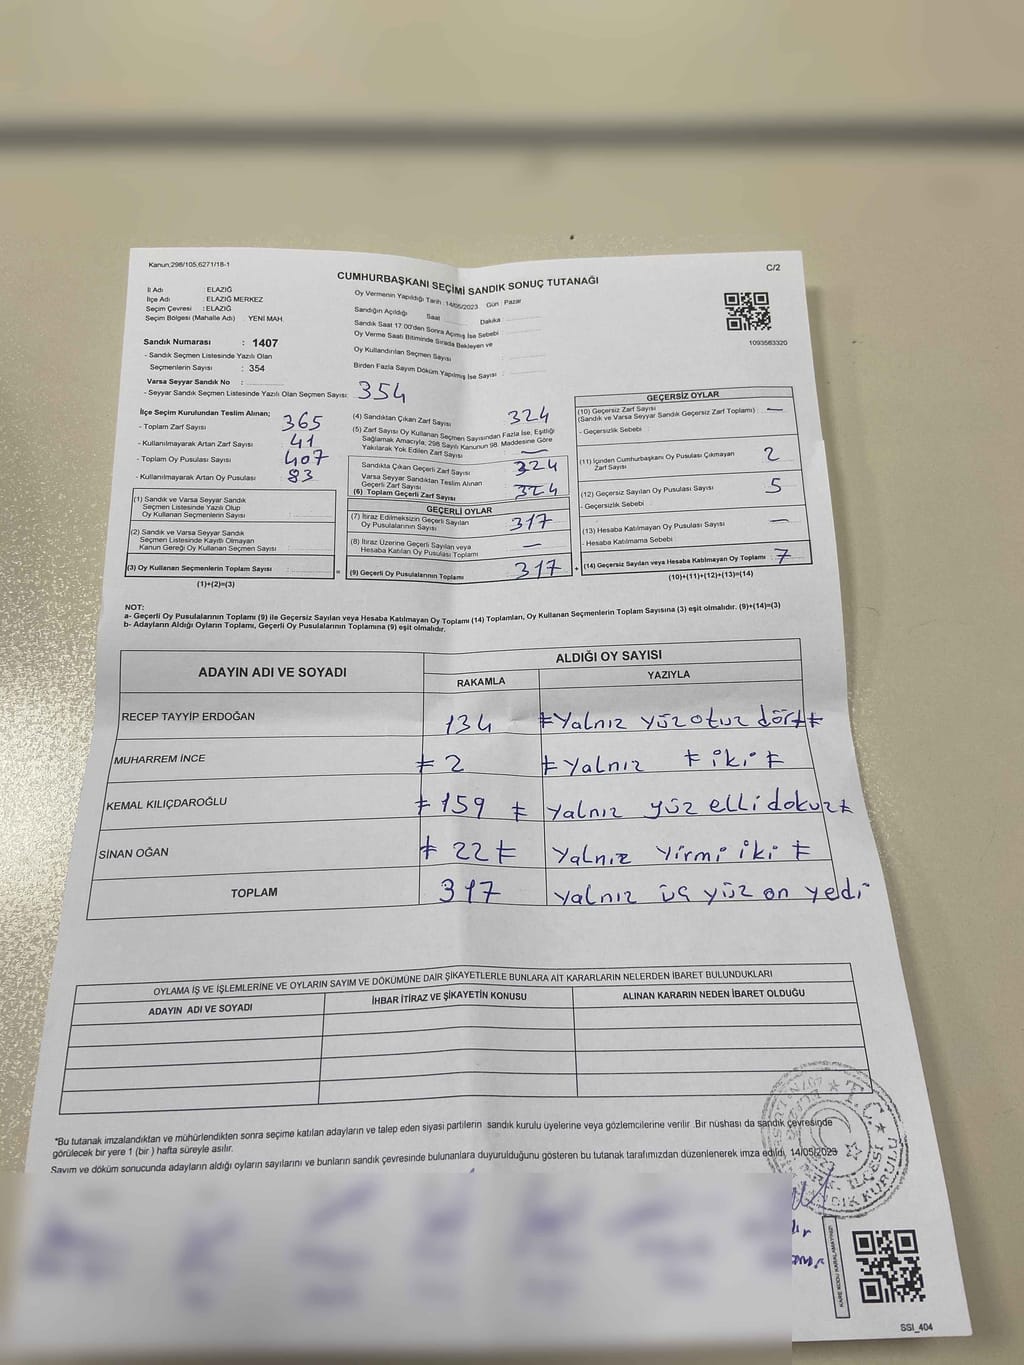 Kanun,298/105,6271/18-1
C/2
CUMHURBAŞKANI SEÇİMİ SANDIK SONUÇ TUTANAĞI
İl Adı : ELAZIĞ
İlçe Adı : ELAZIĞ MERKEZ
Seçim Çevresi : ELAZIĞ
Seçim Bölgesi (Mahalle Adı) YENİ MAH.
Sandık Numarası : 1407
- Sandık Seçmen Listesinde Yazılı Olan
Seçmenlerin Sayısı : 354
Varsa Seyyar Sandık No :
- Seyyar Sandık Seçmen Listesinde Yazılı Olan Seçmen Sayısı: 354
Oy Vermenin Yapıldığı Tarih : 14/05/2023 Gün : Pazar
Sandığın Açıldığı Saat Dakika
Sandık Saat 17:00'den Sonra Açımış İse Sebebi
Oy Verme Saati Bitiminde Sırada Bekleyen ve
Oy Kullandırılan Seçmen Sayısı :
Birden Fazla Sayım Döküm Yapılmış İse Sayısı :
1093563320
İlçe Seçim Kurulundan Teslim Alınan;
- Toplam Zarf Sayısı 365
- Kullanılmayarak Artan Zarf Sayısı 41
- Toplam Oy Pusulası Sayısı 407
- Kullanılmayarak Artan Oy Pusulası 83
(1) Sandık ve Varsa Seyyar Sandık
Seçmen Listesinde Yazılı Olup
Oy Kullanan Seçmenlerin Sayısı :
(2) Sandık ve Varsa Seyyar Sandık
Seçmen Listesinde Kayıtlı Olmayan
Kanun Gereği Oy Kullanan Seçmen Sayısı :
(3) Oy Kullanan Seçmenlerin Toplam Sayısı : =
(1)+(2)=(3)
(4) Sandıktan Çıkan Zarf Sayısı 324
(5) Zarf Sayısı Oy Kullanan Seçmen Sayısından Fazla İse, Eşitliği
Sağlamak Amacıyla, 298 Sayılı Kanunun 98. Maddesine Göre
Yakılarak Yok Edilen Zarf Sayısı —
Sandıkta Çıkan Geçerli Zarf Sayısı 324
Varsa Seyyar Sandıktan Teslim Alınan
Geçerli Zarf Sayısı
(6) Toplam Geçerli Zarf Sayısı 324
GEÇERLİ OYLAR
(7) İtiraz Edilmeksizin Geçerli Sayılan
Oy Pusulalarının Sayısı 317
(8) İtiraz Üzerine Geçerli Sayılan veya
Hesaba Katılan Oy Pusulası Toplamı —
(9) Geçerli Oy Pusulalarının Toplamı 317 +
GEÇERSİZ OYLAR
(10) Geçersiz Zarf Sayısı
(Sandık ve Varsa Seyyar Sandık Geçersiz Zarf Toplamı) —
- Geçersizlik Sebebi :
(11) İçinden Cumhurbaşkanı Oy Pusulası Çıkmayan
Zarf Sayısı 2
(12) Geçersiz Sayılan Oy Pusulası Sayısı 5
- Geçersizlik Sebebi :
(13) Hesaba Katılmayan Oy Pusulası Sayısı —
- Hesaba Katılmama Sebebi :
(14) Geçersiz Sayılan veya Hesaba Katılmayan Oy Toplamı : 7
(10)+(11)+(12)+(13)=(14)
NOT:
a- Geçerli Oy Pusulalarının Toplamı (9) ile Geçersiz Sayılan veya Hesaba Katılmayan Oy Toplamı (14) Toplamları, Oy Kullanan Seçmenlerin Toplam Sayısına (3) eşit olmalıdır. (9)+(14)=(3)
b- Adayların Aldığı Oyların Toplamı, Geçerli Oy Pusulalarının Toplamına (9) eşit olmalıdır.
ADAYIN ADI VE SOYADI
ALDIĞI OY SAYISI
RAKAMLA YAZIYLA
RECEP TAYYİP ERDOĞAN 134 Yalnız yüz otuz dört
MUHARREM İNCE 2 Yalnız iki
KEMAL KILIÇDAROĞLU 159 Yalnız yüz elli dokuz
SİNAN OĞAN 22 Yalnız Yirmi iki
TOPLAM 317 Yalnız üç yüz on yedi
OYLAMA İŞ VE İŞLEMLERİNE VE OYLARIN SAYIM VE DÖKÜMÜNE DAİR ŞİKAYETLERLE BUNLARA AİT KARARLARIN NELERDEN İBARET BULUNDUKLARI
ADAYIN ADI VE SOYADI İHBAR İTİRAZ VE ŞİKAYETİN KONUSU ALINAN KARARIN NEDEN İBARET OLDUĞU
*Bu tutanak imzalandıktan ve mühürlendikten sonra seçime katılan adayların ve talep eden siyasi partilerin sandık kurulu üyelerine veya gözlemcilerine verilir .Bir nüshası da sandık çevresinde
görülecek bir yere 1 (bir ) hafta süreyle asılır.
Sayım ve döküm sonucunda adayların aldığı oyların sayılarını ve bunların sandık çevresinde bulunanlara duyurulduğunu gösteren bu tutanak tarafımızdan düzenlenerek imza edildi. 14/05/2023
T.C.
İLÇESİ
KARE KODU KARALAMAYINIZ!
SSİ_404